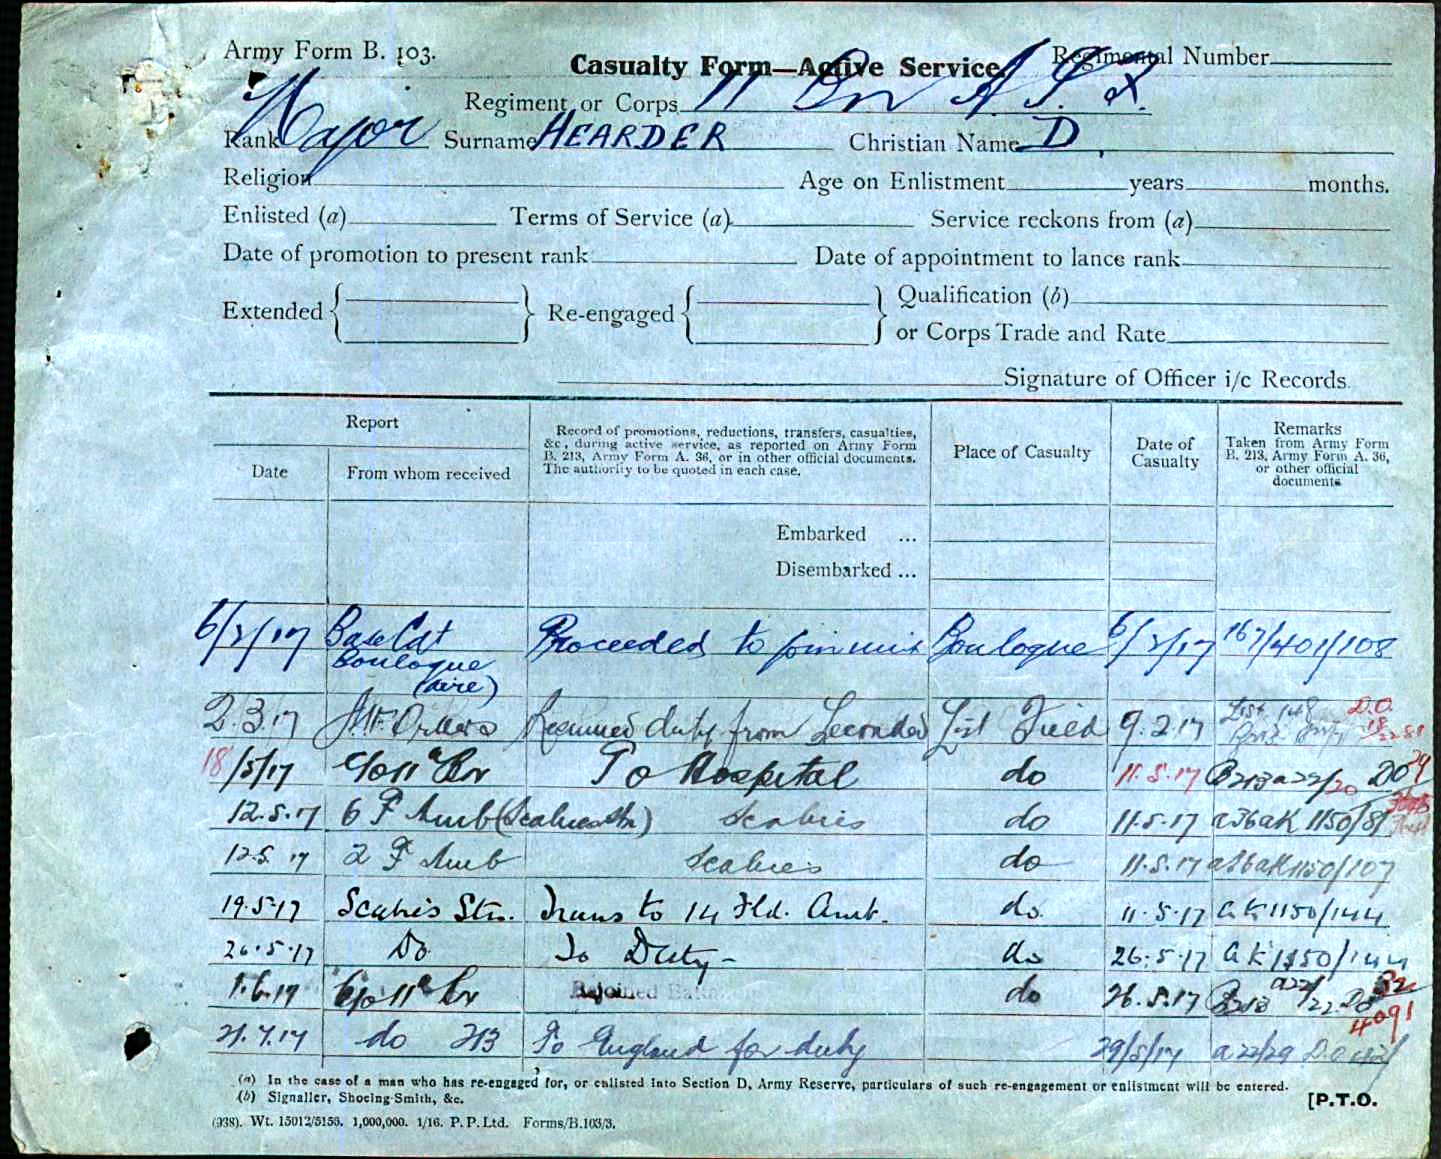 Army Form B. 103.
Casualty Form—Active Service.
Regimental Number
Regiment or Corps 11
Rank Major Surname HEARDER Christian Name D.
Religion Age on Enlistment years months.
Enlisted (a) Terms of Service (a) Service reckons from (a)
Date of promotion to present rank Date of appointment to lance rank
Extended { } Re-engaged { } Qualification (b)
or Corps Trade and Rate
Signature of Officer i/c Records.
Report
Date
From whom received
Record of promotions, reductions, transfers, casualties,
&c., during active service, as reported on Army Form
B. 213, Army Form A. 36, or in other official documents.
The authority to be quoted in each case.
Place of Casualty
Date of
Casualty
Remarks
Taken from Army Form
B. 213, Army Form A. 36,
or other official
documents
Embarked ...
Disembarked ...
Base Boulogne Proceeded to join unit Boulogne 167/401/108
2.3.17 duty from Field 9.2.17 D.O.
18/5/17 To Hospital do 11.5.17 DO
12.5.17 6 F Amb Scabies do 11.5.17 1150/81
12.5.17 2 F Amb Scabies do 11.5.17 1150/107
19.5.17 Scabies Stn. Trans to 14 Fld. Amb. do. 11.5.17 AK 1150/144
26.5.17 Do To Duty - do 26.5.17 AK 1150/144
Rejoined do 26.5.17 B213 4091
do To England for duty a22/29 D.O.
(a) In the case of a man who has re-engaged for, or enlisted into Section D, Army Reserve, particulars of such re-engagement or enlistment will be entered.
(b) Signaller, Shoeing-Smith, &c.
[P.T.O.
(938). Wt. 15012/5156. 1,000,000. 1/16. P. P. Ltd. Forms/B.103/3.